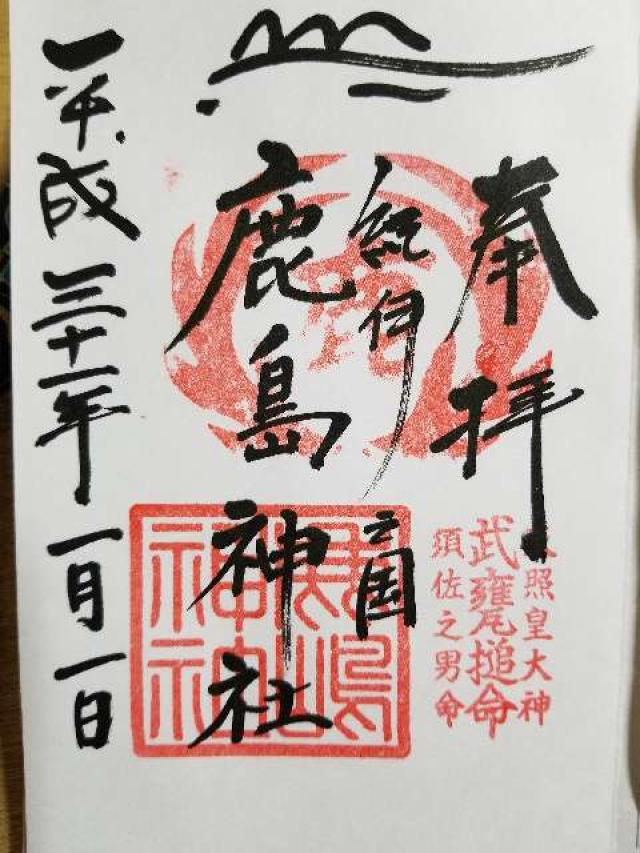 奉拝
紀伊国
鹿島神社
平成三十一年一月一日
照皇大神
武甕槌命
須佐之男命
鹿嶋
神社